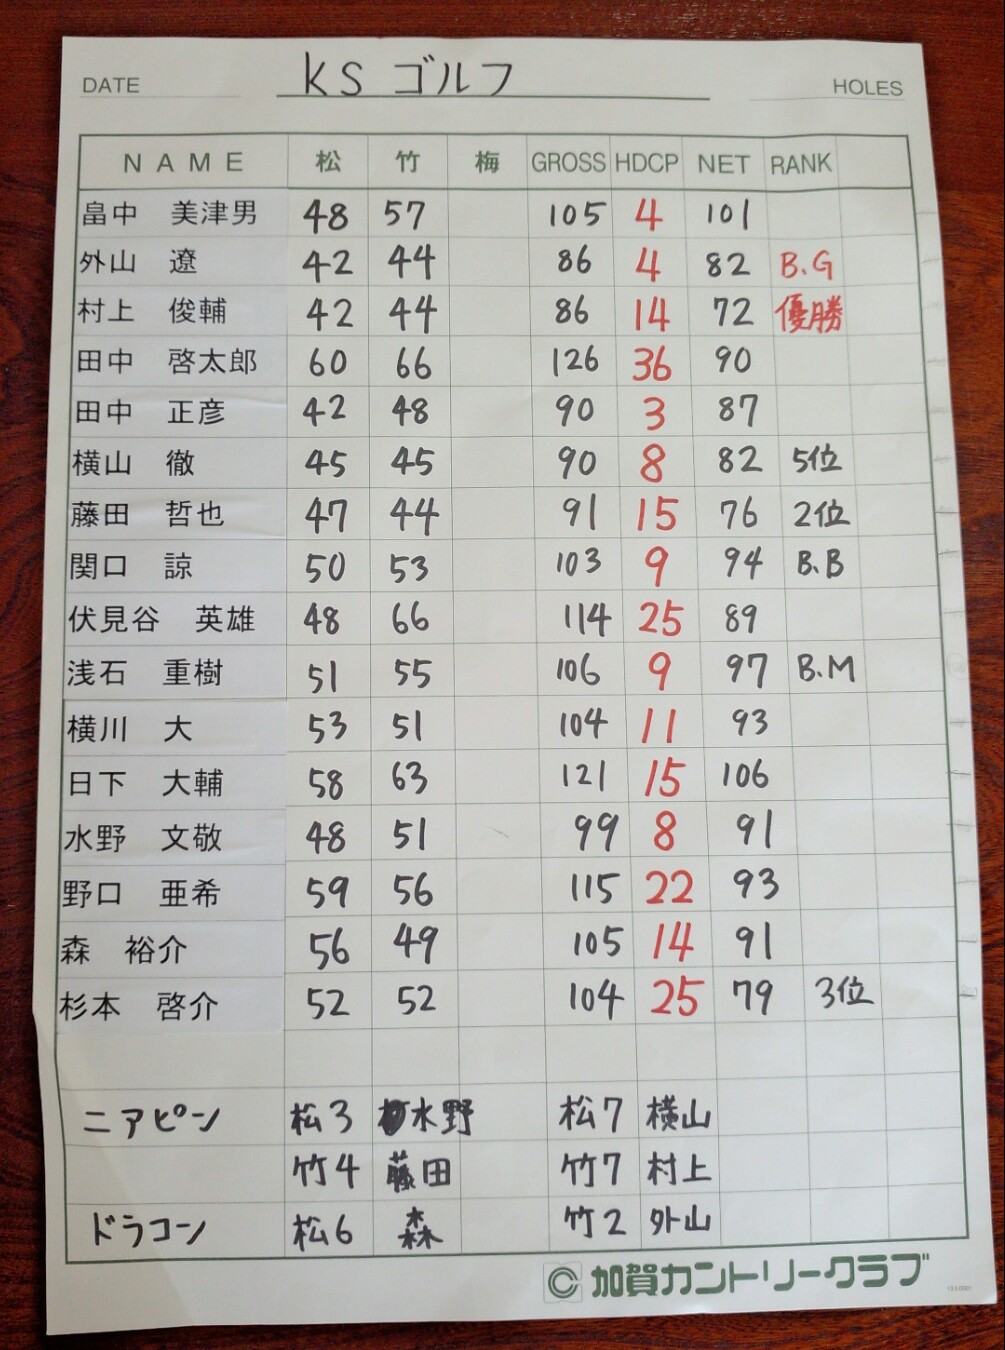 DATE KS ゴルフ HOLES
NAME 松 竹 梅 GROSS HDCP NET RANK
畠中 美津男 48 57 105 4 101
外山 遼 42 44 86 4 82 B.G
村上 俊輔 42 44 86 14 72 優勝
田中 啓太郎 60 66 126 36 90
田中 正彦 42 48 90 3 87
横山 徹 45 45 90 8 82 5位
藤田 哲也 47 44 91 15 76 2位
関口 諒 50 53 103 9 94 B.B
伏見谷 英雄 48 66 114 25 89
浅石 重樹 51 55 106 9 97 B.M
横川 大 53 51 104 11 93
日下 大輔 58 63 121 15 106
水野 文敬 48 51 99 8 91
野口 亜希 59 56 115 22 93
森 裕介 56 49 105 14 91
杉本 啓介 52 52 104 25 79 3位
ニアピン 松3 水野 松7 横山
竹4 藤田 竹7 村上
ドラコン 松6 森 竹2 外山
加賀カントリークラブ